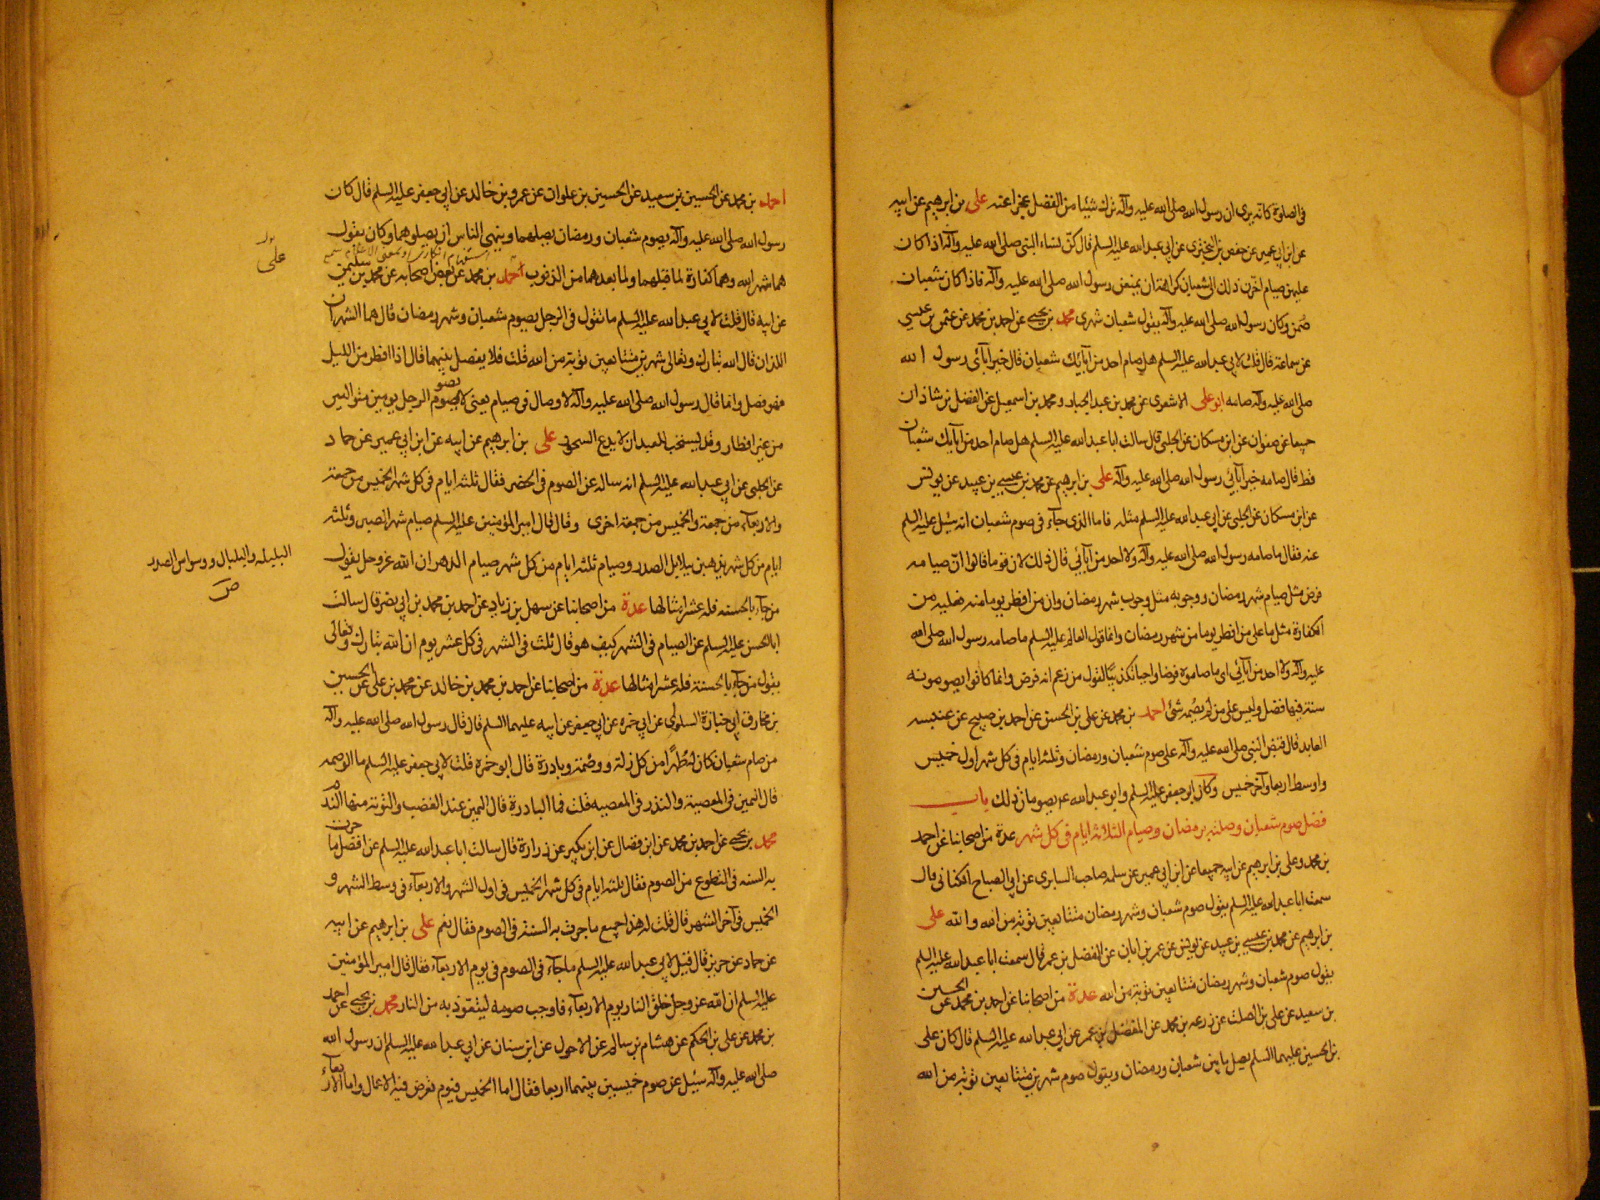 فى الصلوة كانه يرى ان رسول الله صلى الله عليه وآله ترك شيئا من الفضل عجزا عنه على بن ابرهيم عن ابيه
عن ابن ابى عمير عن حفص بن البخترى عن ابى عبد الله عليه السلم قال كن نساء النبى صلى الله عليه وآله اذا كان
عليهن صيام اخرن ذلك الى شعبان كراهة ان يمنعن رسول الله صلى الله عليه وآله فاذا كان شعبان
صمن وكان رسول الله صلى الله عليه وآله يقول شعبان شهرى محمد بن يحيى عن احمد بن محمد عن عثمن بن عيسى
عن سماعة قال قلت لابى عبد الله عليه السلم هل صام احد من آبائك شعبان قال خير آبائى رسول الله
صلى الله عليه وآله صامه ابو على الاشعرى عن محمد بن عبد الجبار ومحمد بن اسمعيل عن الفضل بن شاذان
جميعا عن صفوان عن ابن مسكان عن الحلبى قال سالت ابا عبد الله عليه السلم هل صام احد من آبائك شعبان
قط قال صامه خير آبائى رسول الله صلى الله عليه وآله على بن ابرهيم عن محمد بن عيسى بن عبيد عن يونس
عن ابن مسكان عن الحلبى عن ابى عبد الله عليه السلم مثله فاما الذى جآء فى صوم شعبان انه سئل عليه السلم
عنه فقال ما صامه رسول الله صلى الله عليه وآله ولا احد من آبائى قال ذلك لان قوما قالوا ان صيامه
فرض مثل صيام شهر رمضان ووجوبه مثل وجوب شهر رمضان وان من افطر يوما منه فعليه من
الكفارة مثل ما على من افطر يوما من شهر رمضان وانما قول العالم عليه السلم ما صامه رسول الله صلى الله
عليه وآله ولا احد من آبائى اى ما صاموه فرضا واجبا تكذيبا لقول من زعم انه فرض وانما كانوا يصومونه
سنة فيها فضل وليس على من لم يصمه شئ احمد بن محمد عن على بن الحسن عن احمد بن صبيح عن عنبسه
العابد قال قبض النبى صلى الله عليه وآله على صوم شعبان ورمضان وثلثة ايام فى كل شهر اول خميس
واوسط اربعا وآخر خميس وكان ابو جعفر عليه السلم وابو عبد الله ع يصومان ذلك باب
فضل صوم شعبان وصلته برمضان وصيام الثلاثة ايام فى كل شهر عدة من اصحابنا عن احمد
بن محمد وعلى بن ابرهيم عن ابيه جميعا عن ابن ابى عمير عن سلمة صاحب السابرى عن ابى الصباح الكنانى قال
سمعت ابا عبد الله عليه السلم يقول صوم شعبان وشهر رمضان متتابعين توبة من الله والله على
بن ابرهيم عن محمد بن عيسى بن عبيد عن يونس عن عمر بن ابان عن المفضل بن عمر قال سمعت ابا عبد الله عليه السلم
يقول صوم شعبان وشهر رمضان متتابعين توبة من الله عدة من اصحابنا عن احمد بن محمد عن الحسين
بن سعيد عن على بن الصلت عن زرعه بن محمد عن المفضل بن عمر عن ابى عبد الله عليه السلم قال كان على
بن الحسين عليهما السلم يصل ما بين شعبان ورمضان ويقول صوم شهرين متتابعين توبة من الله
احمد بن محمد عن الحسين بن سعيد عن الحسين بن علوان عن عمرو بن خالد عن ابى جعفر عليه السلم قال كان
رسول الله صلى الله عليه وآله يصوم شعبان ورمضان يصلهما وينهى الناس ان يصلوهما وكان يقول
هما شهر الله وهما كفارة لما قبلهما ولما بعدهما من الذنوب احمد بن محمد عن بعض اصحابه عن محمد بن سليمن
على
عن ابيه قال قلت لابى عبد الله عليه السلم ما تقول فى الرجل يصوم شعبان وشهر رمضان قال هما الشهران
اللذان قال الله تبارك وتعالى شهرين متتابعين توبة من الله قلت فلا يفصل بينهما قال اذا افطر من الليل
فهو فصل وانما قال رسول الله صلى الله عليه وآله لا وصال فى صيام يعنى لا يصوم الرجل يومين متواليين
من غير افطار وقد يستحب للعبد ان لا يدع السحور على بن ابرهيم عن ابيه عن ابن ابى عمير عن حماد
عن الحلبى عن ابى عبد الله عليه السلم انه ساله عن الصوم فى الحضر فقال ثلثة ايام فى كل شهر الخميس من جمعة
والاربعآء من جمعة والخميس من جمعة اخرى وقال قال امير المؤمنين عليه السلم صيام شهر الصبر وثلثة
ايام من كل شهر يذهبن ببلابل الصدر وصيام ثلثة ايام من كل شهر صيام الدهر ان الله عز وجل يقول
البلبلة والبلبال ووسواس الصدر
ص
من جآء بالحسنه فله عشر امثالها عدة من اصحابنا عن سهل بن زياد عن احمد بن محمد بن ابى نصر قال سالت
ابا الحسن عليه السلم عن الصيام فى الشهر كيف هو قال ثلث فى الشهر فى كل عشر يوم ان الله تبارك وتعالى
يقول من جآء بالحسنة فله عشر امثالها عدة من اصحابنا عن احمد بن محمد بن خالد عن محمد بن على عن الحسين
بن مخارق ابى جنادة السلولى عن ابى حمزه عن ابى جعفر عن ابيه عليهما السلم قال قال رسول الله صلى الله عليه وآله
من صام شعبان كان له طهرا من كل زلة ووصمة وبادرة قال ابو حمزه قلت لابى جعفر عليه السلم ما الوصمه
قال اليمين فى المعصية والنذر فى المعصيه قلت فما البادرة قال اليمين عند الغضب والتوبة منها الندم
محمد بن يحيى عن احمد بن محمد عن ابن فضال عن ابن بكير عن زرارة قال سالت ابا عبد الله عليه السلم عن افضل ما جرت
به السنه فى التطوع من الصوم فقال ثلثة ايام فى كل شهر الخميس فى اول الشهر والاربعآء فى وسط الشهر و
الخميس فى آخر الشهر قال قلت له هذا جميع ما جرت به السنة فى الصوم فقال نعم على بن ابرهيم عن ابيه
عن حماد عن حريز قال قيل لابى عبد الله عليه السلم ما جآء فى الصوم فى يوم الاربعآء فقال قال امير المؤمنين
عليه السلم ان الله عز وجل خلق النار يوم الاربعآء فاوجب صومه ليتعوذ به من النار محمد بن يحيى عن احمد
بن محمد عن على بن الحكم عن هشام بن سالم عن الاحول عن ابن سنان عن ابى عبد الله عليه السلم ان رسول الله
صلى الله عليه وآله سئل عن صوم خميسين بينهما اربعا فقال اما الخميس فيوم تعرض فيه الاعمال واما الاربعآء